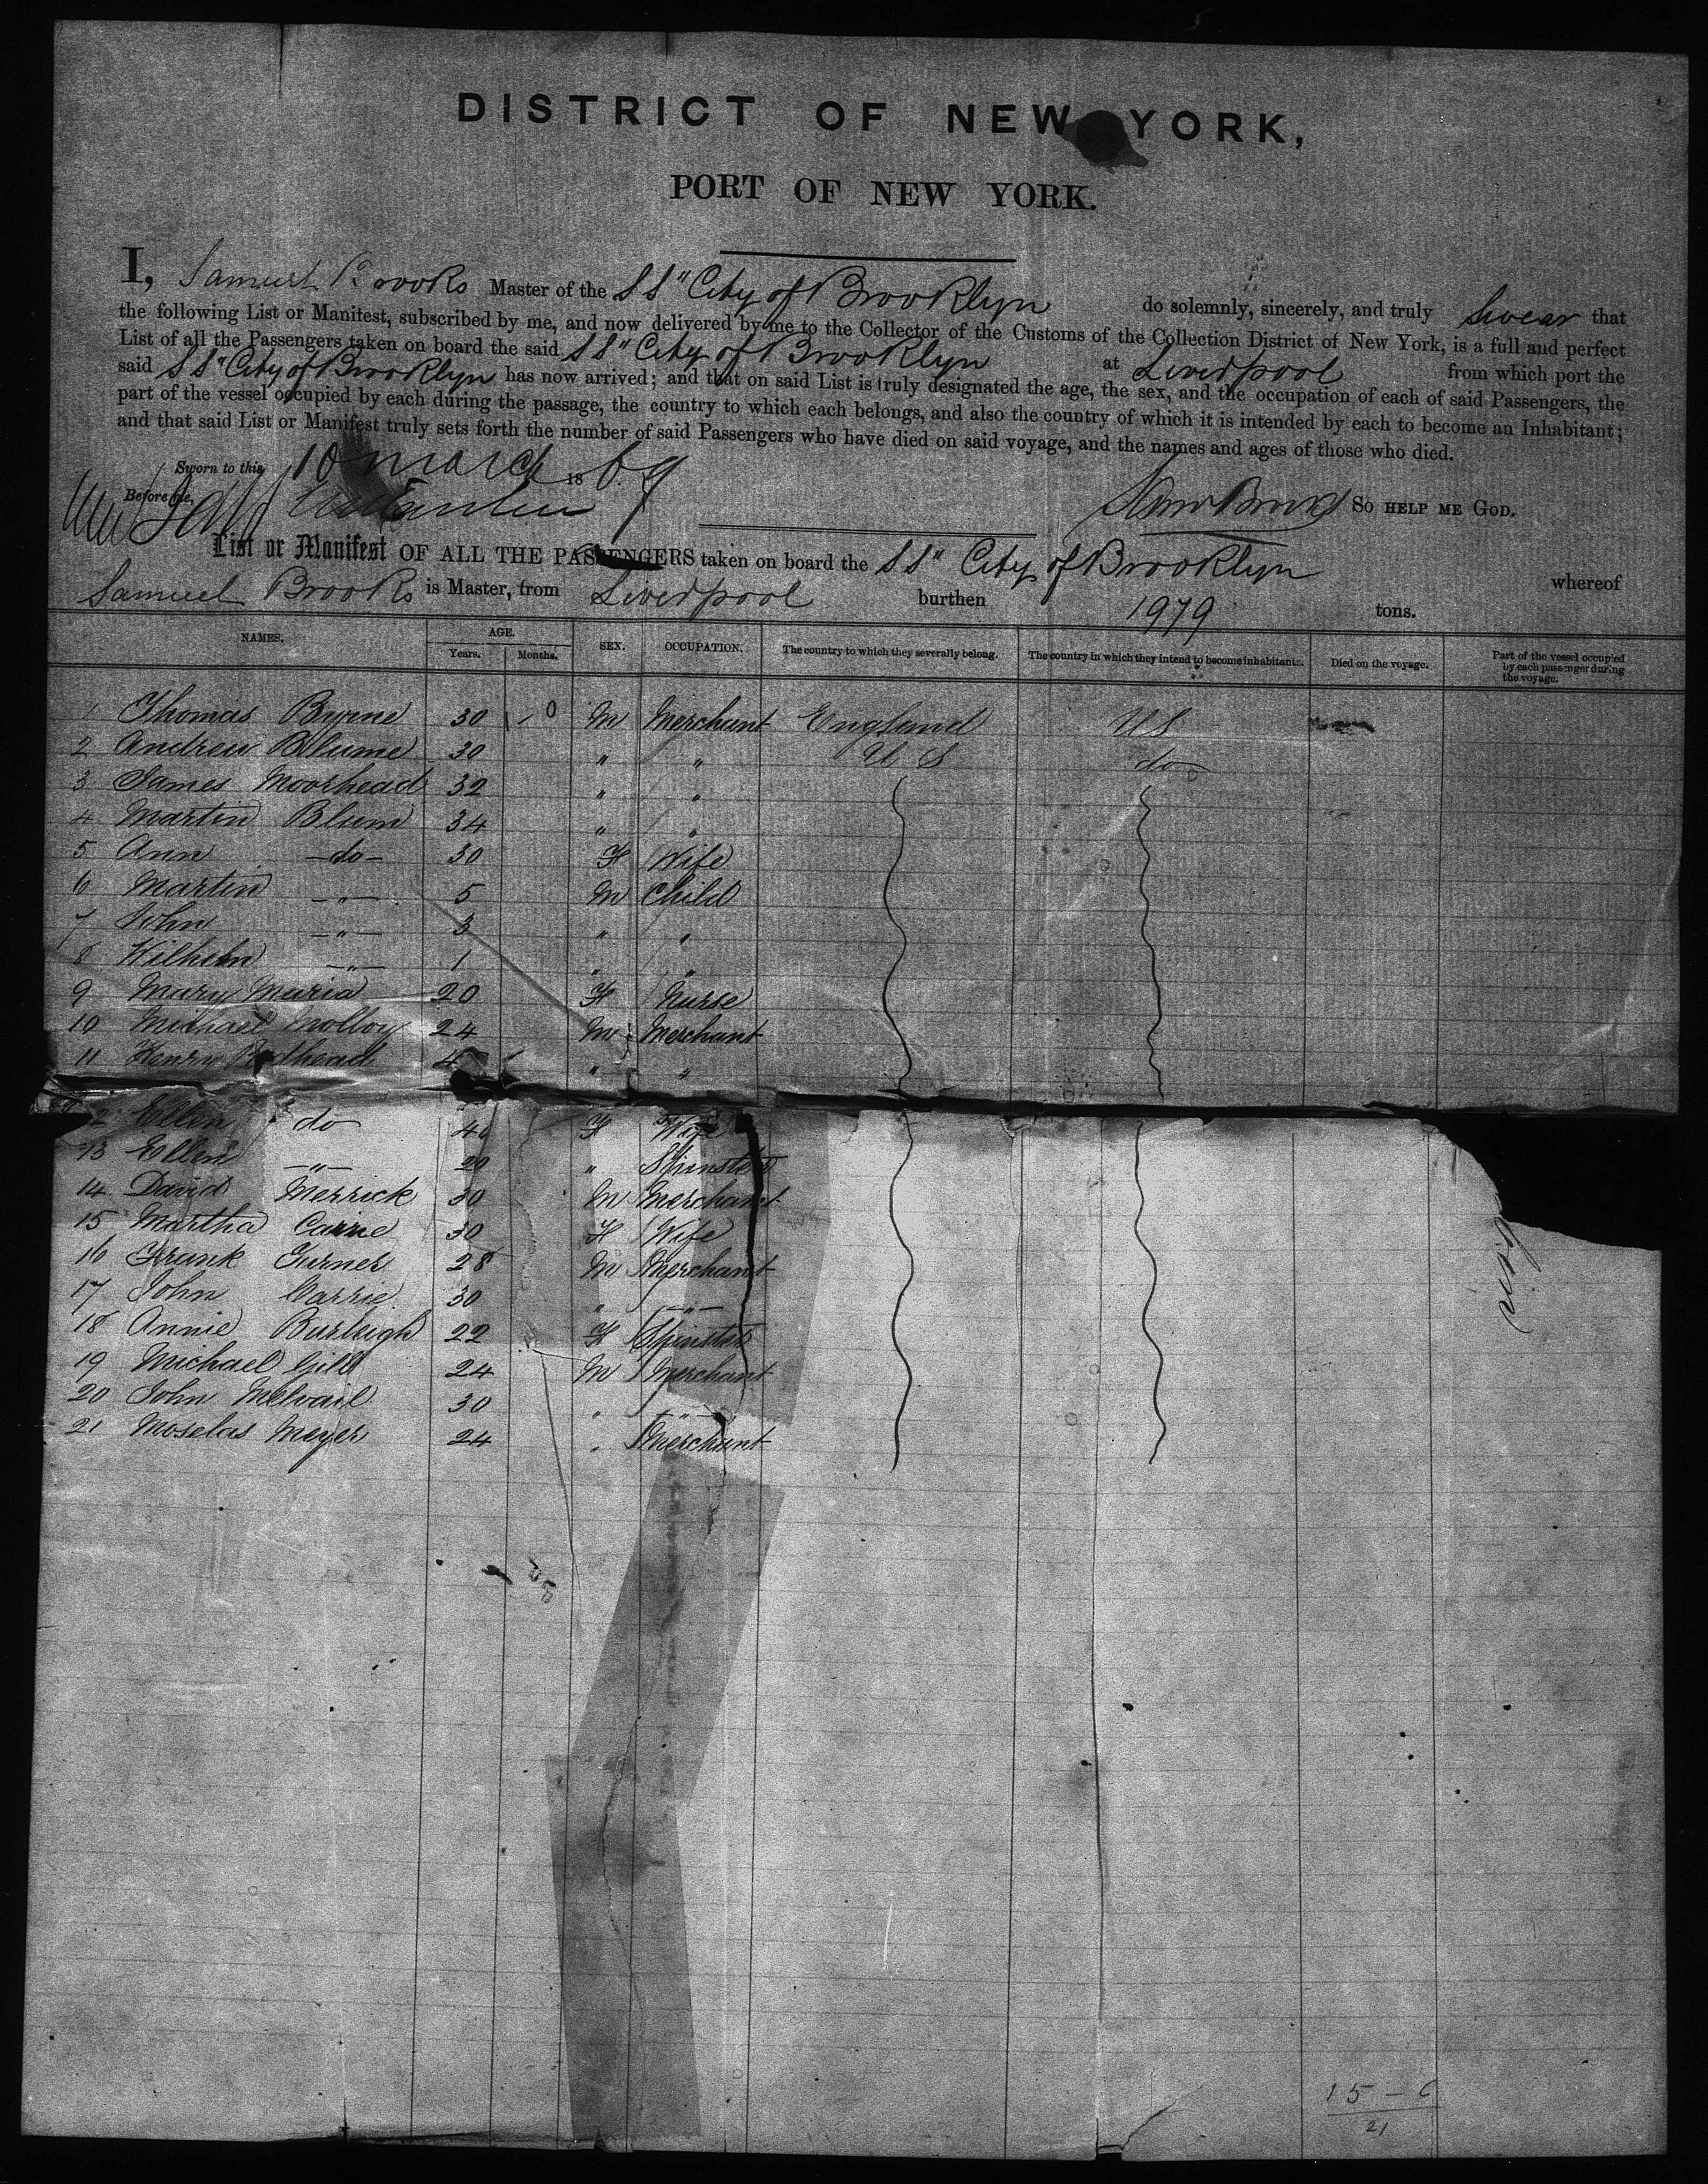 DISTRICT OF NEW YORK,
PORT OF NEW YORK.
I, Samuel Brooks Master of the SS "City of Brooklyn do solemnly, sincerely, and truly swear that
the following List or Manifest, subscribed by me, and now delivered by me to the Collector of the Customs of the Collection District of New York, is a full and perfect
List of all the Passengers taken on board the said SS "City of Brooklyn at Liverpool from which port the
said SS "City of Brooklyn has now arrived; and that on said List is truly designated the age, the sex, and the occupation of each of said Passengers, the
part of the vessel occupied by each during the passage, the country to which each belongs, and also the country of which it is intended by each to become an Inhabitant;
and that said List or Manifest truly sets forth the number of said Passengers who have died on said voyage, and the names and ages of those who died.
Sworn to this 10 March 1869
Before me, Sam Brooks So HELP ME GOD.
List or Manifest OF ALL THE PASSENGERS taken on board the SS" City of Brooklyn whereof
Samuel Brooks is Master, from Liverpool burthen 1979 tons.
NAMES. AGE. Years. Months. SEX. OCCUPATION. The country to which they severally belong. The country in which they intend to become inhabitants. Died on the voyage. Part of the vessel occupied by each passenger during the voyage.
1 Thomas Byrne 30 M Merchant England US
2 Andrew Blume 30 " " U S do
3 James Moorhead 32 " "
4 Martin Blum 34 " "
5 Ann -do- 30 F Wife
6 Martin -"- 5 M Child
7 John -"- 3 " "
8 Wilhelm -"- 1 " "
9 Mary Maria 20 F Nurse
10 Michael Molloy 24 M Merchant
11 Henry " "
12 Ellen do F Wife
13 Ellen -"- 20 " Spinster
14 David Merrick 30 M Merchant
15 Martha Carrie 30 F Wife
16 Frank Turner 28 M Merchant
17 John Carrie 30 " -"-
18 Annie Burleigh 22 F Spinster
19 Michael Gill 24 M Merchant
20 John McIvail 30 " -"-
21 Moselas Meyer 24 " Merchant
15 - 6
21